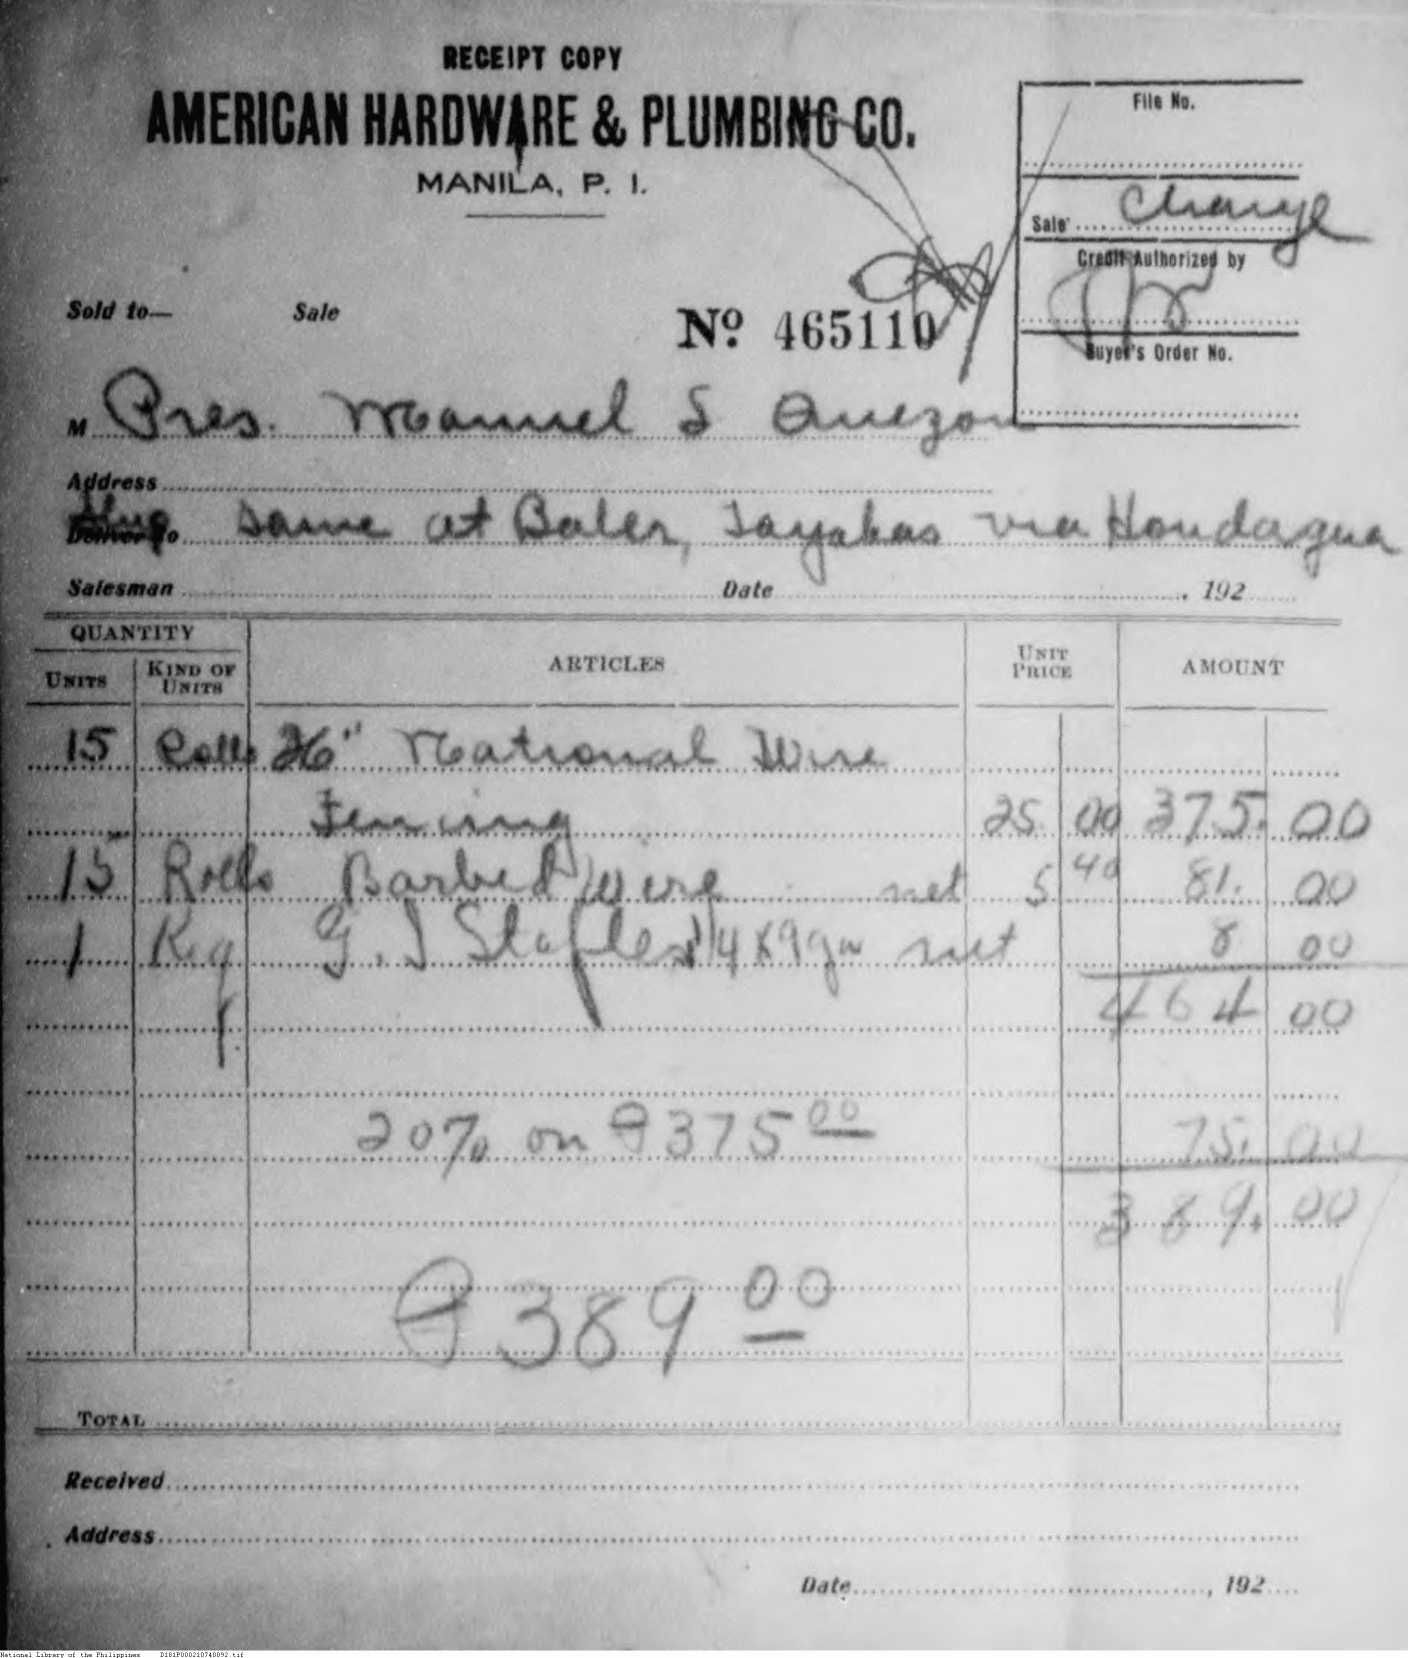 RECEIPT COPY
AMERICAN HARDWARE & PLUMBING CO.
MANILA, P. I.
File No.
Sale Charge
Credit Authorized by
Buyer's Order No.
Sold to— Sale
No 465110
M Pres. Manuel L Quezon
Address
Ship same at Baler, Tayabas via Hondagua
Salesman Date , 192
QUANTITY ARTICLES UNIT PRICE AMOUNT
UNITS KIND OF UNITS
15 Rolls 26" National Wire
Fencing 25 00 375. 00
15 Rolls Barbed Wire net 5 40 81. 00
1 Keg G. I Staples 1 1/4 x 9 ga net 8 00
464 00
20% on ₱375 00 75. 00
389. 00
₱389 00
TOTAL
Received
Address
Date , 192
National Library of the Philippines D181P000210740092.tif